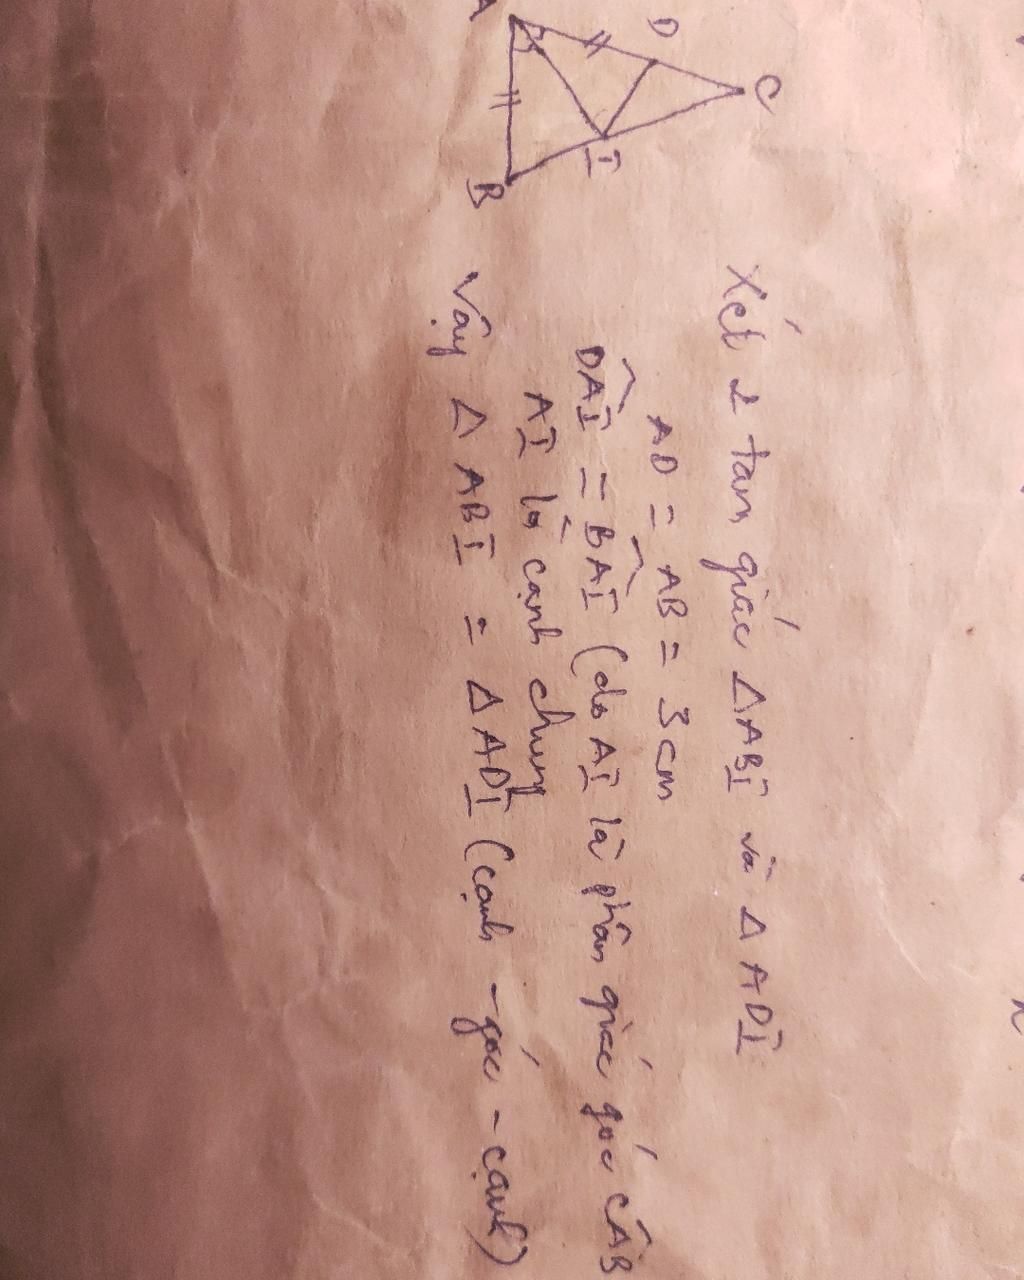 A
D
C
I
B
Xét 2 tam giác ΔABI và ΔADI
AD = AB = 3cm
DAI^ = BAI^ (do AI là phân giác góc CAB^
AI là cạnh chung
Vậy ΔABI = ΔADI (cạnh - góc - cạnh)